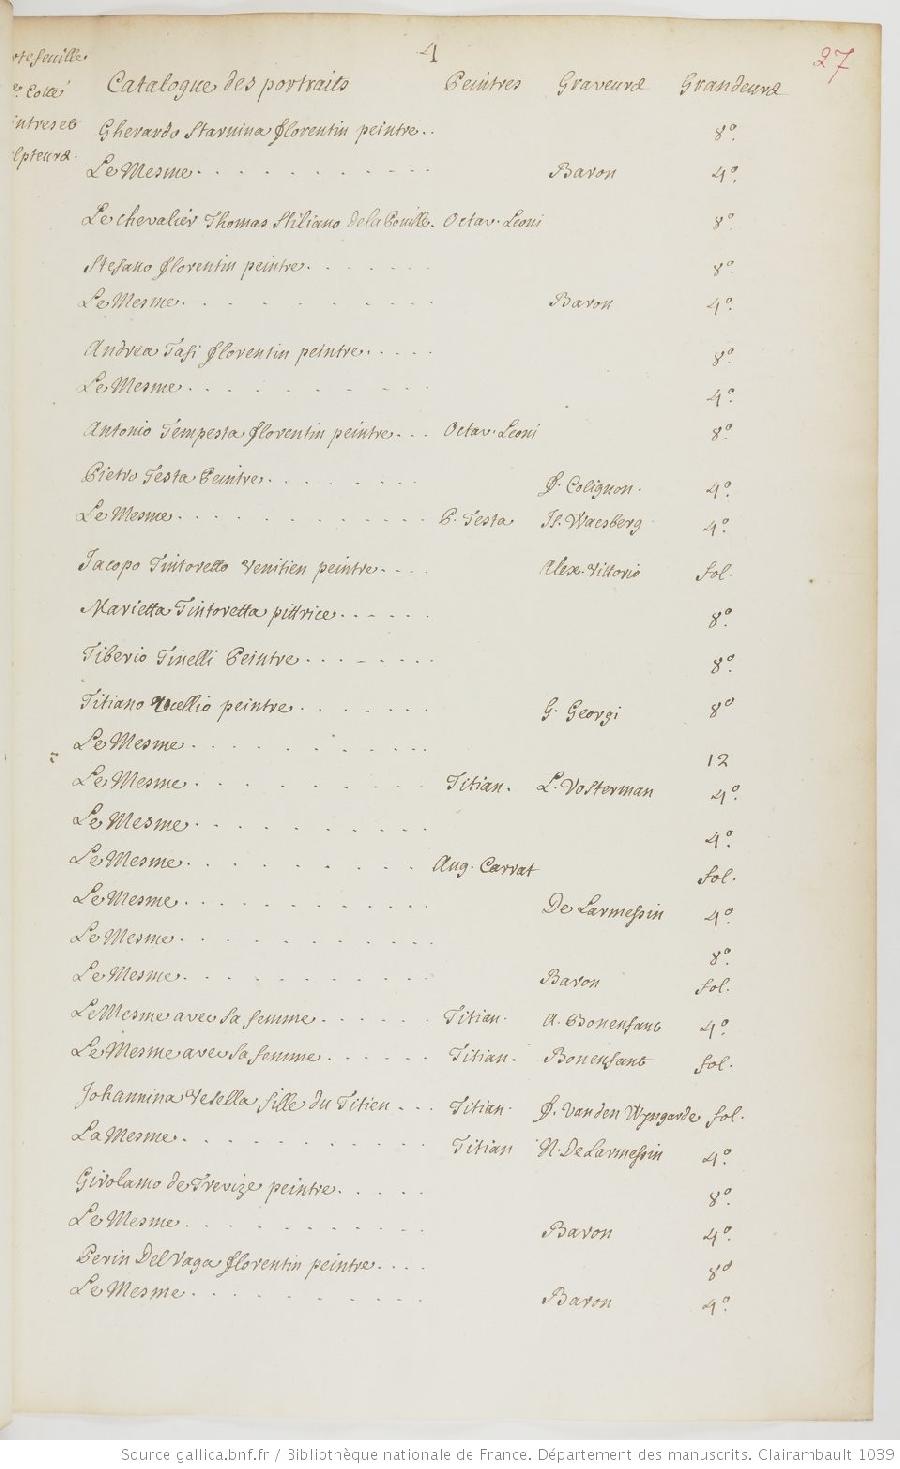 4
27
Catalogue des portraits Peintres Graveurs Grandeurs
Gherardo Starnina florentin peintre.. 8º
Le Mesme Baron 4º
Le chevalier Thomas Stiliano de la Pouille. Octav. Leoni 8º
Stefano florentin peintre 8º
Le Mesme Baron 4º
Andrea Tafi florentin peintre 8º
Le Mesme 4º
Antonio Tempesta florentin peintre Octav. Leoni 8º
Pietro Testa Peintre F. Colignon. 4º
Le Mesme P. Testa Ft. Waesberg 4º
Jacopo Tintoretto Venitien peintre Alex. Vittorio fol.
Marietta Tintoretta pittrice 8º
Tiberio Tinelli Peintre 8º
Titiano peintre G. Georgi 8º
Le Mesme 12
Le Mesme Titian. L. Vosterman 4º
Le Mesme 4º
Le Mesme Aug. Carrat fol.
Le Mesme De Larmessin 4º
Le Mesme 8º
Le Mesme Baron fol.
Le Mesme avec sa femme Titian. A. Bonenfant 4º
Le Mesme avec sa femme Titian. Bonenfant fol.
Johannina Vesella fille du Titien Titian. F. Vanden Wyngarde fol.
La Mesme Titian N. De Larmessin 4º
Girolamo de Trevize peintre 8º
Le Mesme Baron 4º
Perin Del Vaga florentin peintre 8º
Le Mesme Baron 4º
Source gallica.bnf.fr / Bibliothèque nationale de France. Département des manuscrits. Clairambault 1039